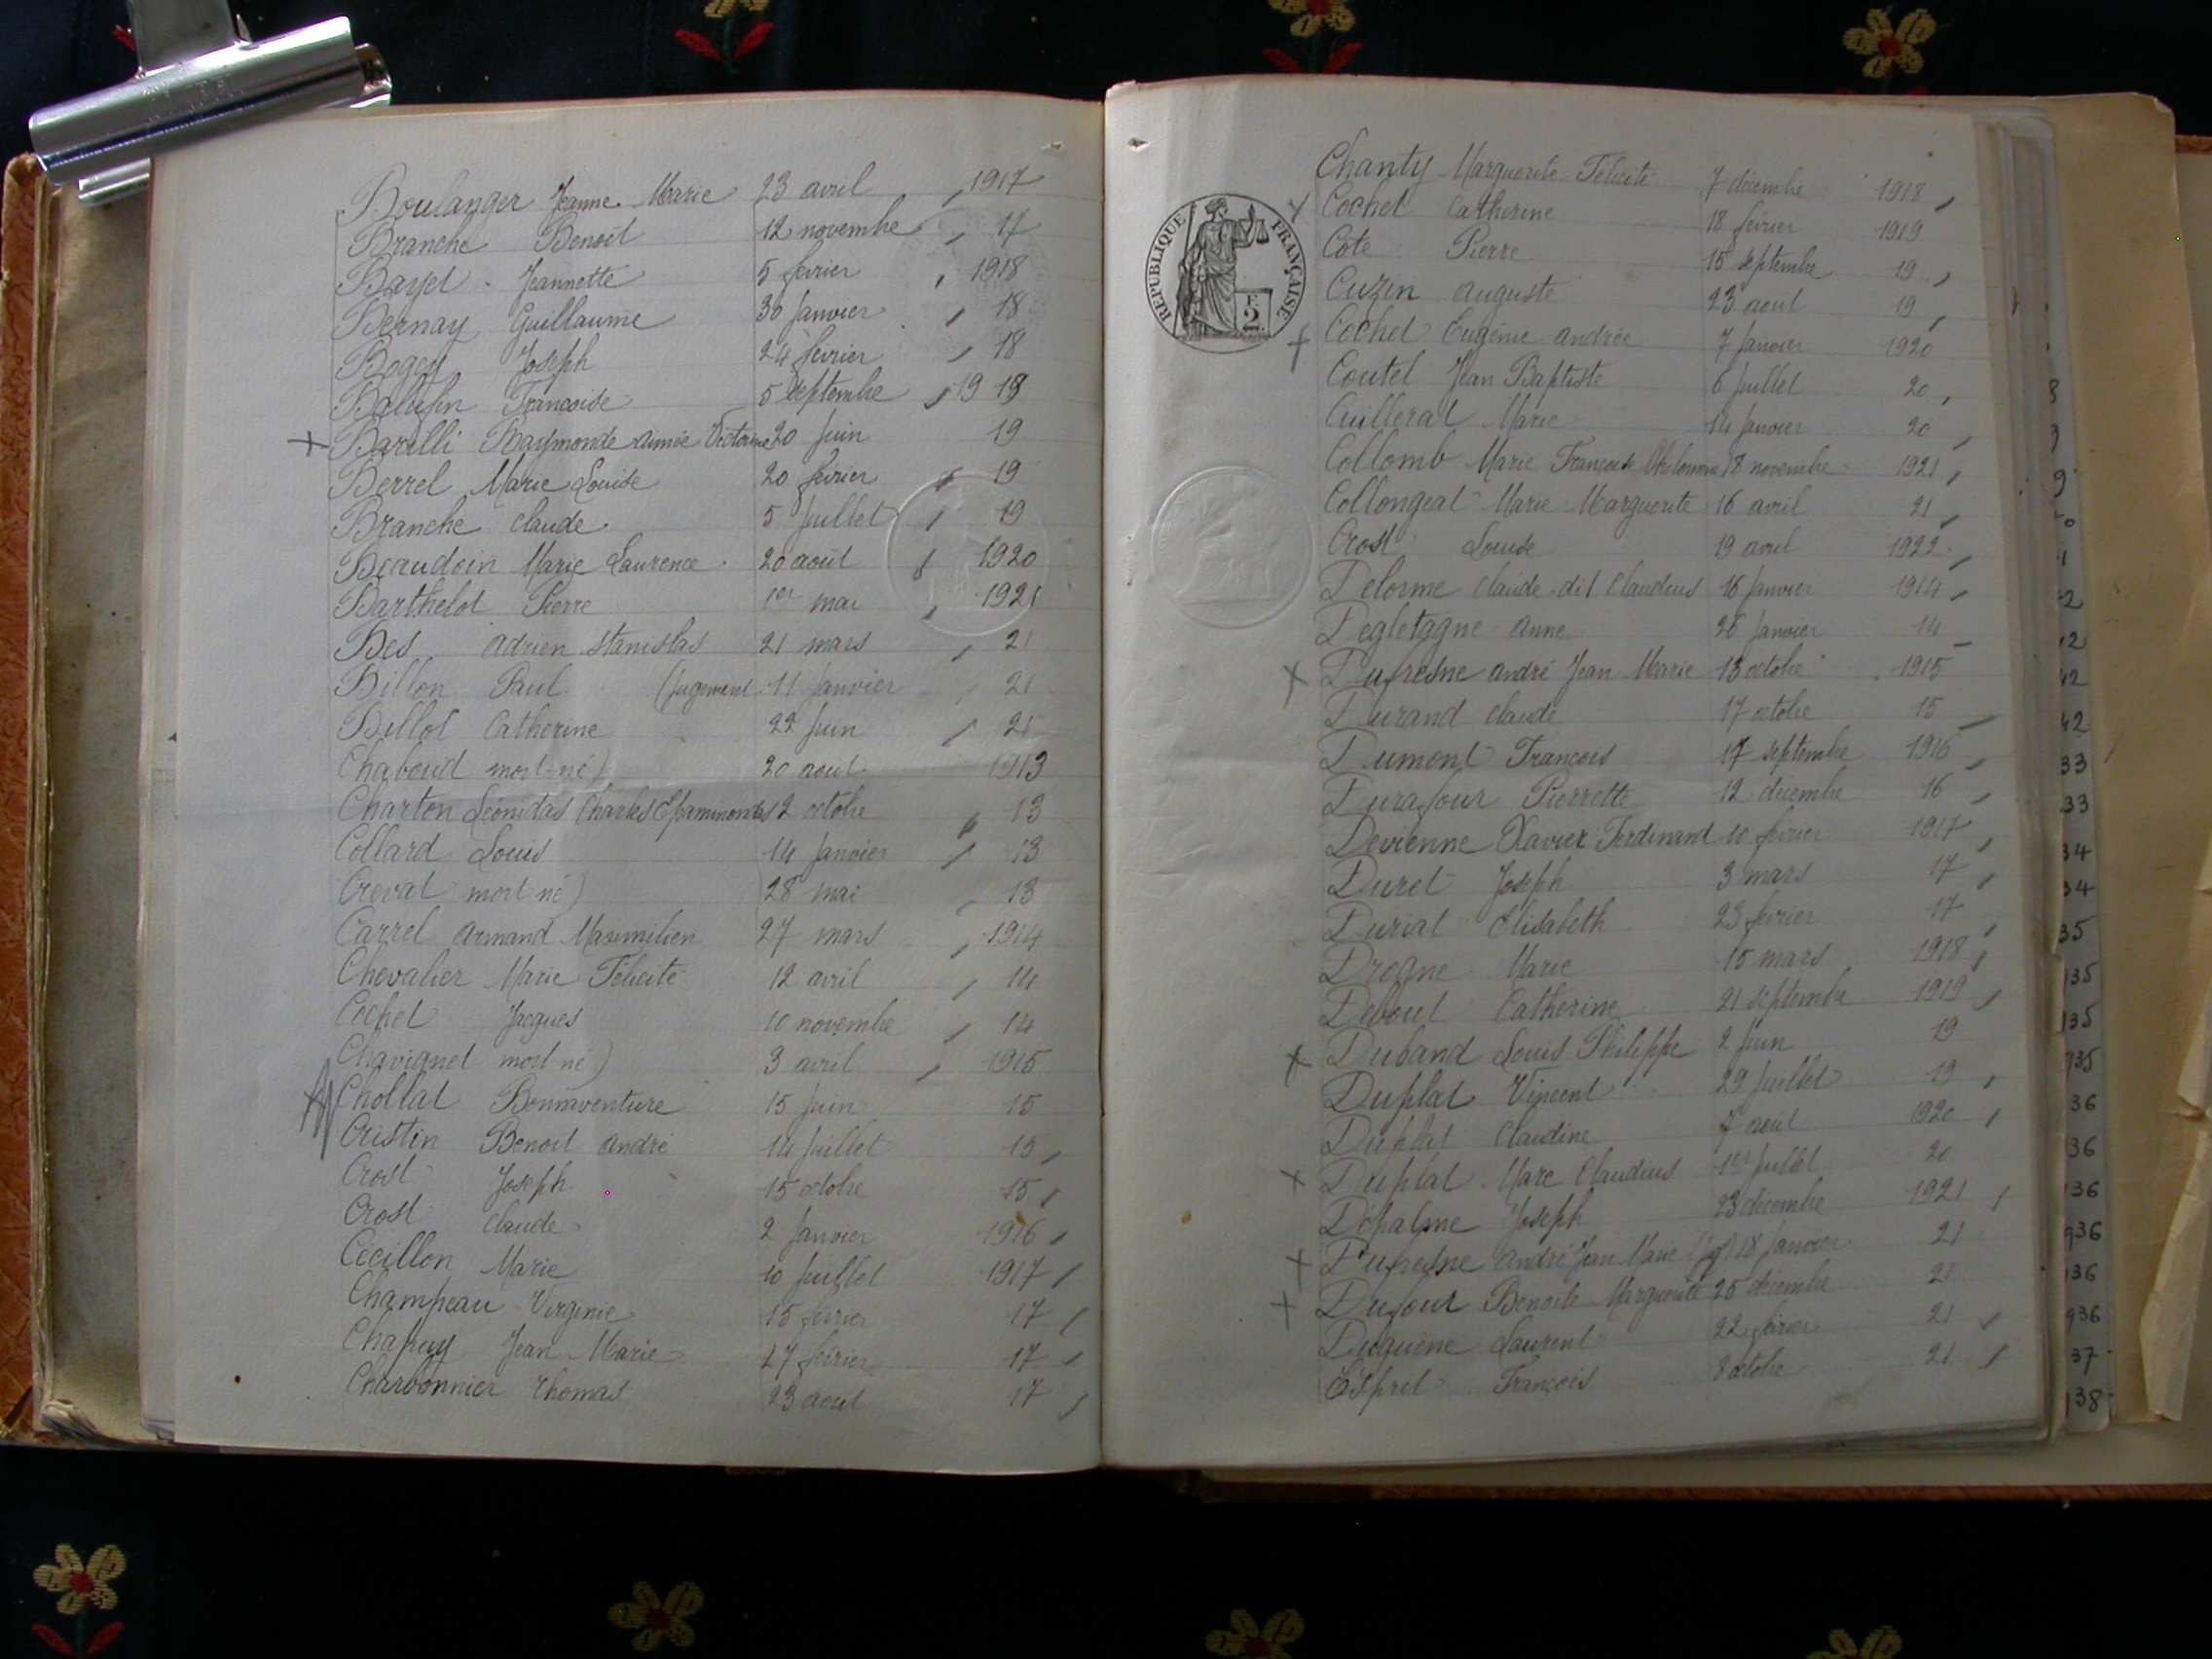 Boulanger Jeanne Marie 23 avril 1917
Branche Benoit 12 novembre 17
Bayet Jeannette 5 février 1918
Bernay Guillaume 30 janvier 18
Joseph 24 février 18
Françoise 5 septembre 1918
Barelli Raymonde aimée Victorine 20 juin 19
Berrel Marie Louise 20 février 19
Branche Claude 5 juillet 19
Beaudoin Marie Laurence 20 août 1920
Barthelot Pierre 1er mai 1921
Bes adrien stanislas 21 mars 21
Billon Paul (jugement 11 janvier 21
Billot Catherine 22 juin 21
Chaboud mort-né) 20 aout 1913
Charton Léonidas Charles Epaminondas 2 octobre 13
Collard Louis 14 janvier 13
Creval mort-né) 28 mai 13
Carrel armand Maximilien 27 mars 1914
Chevalier Marie Félicité 12 avril 14
Cochet Jacques 10 novembre 14
Chavignet mort-né) 3 avril 1915
Chollat Bonnaventure 15 juin 15
Cristin Benoit andré 14 juillet 15
Crost Joseph 15 octobre 15
Crost Claude 2 janvier 1916
Cécillon Marie 10 juillet 1917
Champeau Virginie 15 février 17
Chapuy Jean Marie 27 février 17
Charbonnier Thomas 23 aout 17
RÉPUBLIQUE FRANÇAISE
F.
2
Chanty Marguerite Félicité 7 décembre 1918
Cochet Catherine 18 février 1919
Cote Pierre 15 septembre 19
Cuzin auguste 23 août 19
Cochet Eugénie andrée 7 janvier 1920
Coutel Jean Baptiste 6 juillet 20
Cuillerat Marie 14 janvier 20
Collomb Marie Françoise Philomène 18 novembre 1921
Collongeat Marie Marguerite 16 avril 21
Crost Louise 19 avril 1922
Delorme Claude dit Claudius 16 janvier 1914
Degletagne anne 28 janvier 14
Dufresne andré Jean Marie 13 octobre 1915
Durand Claude 17 octobre 15
Dumont François 17 septembre 1916
Durafour Pierrette 12 décembre 16
Devienne Xavier Ferdinand 10 février 1917
Duret Joseph 3 mars 17
Duriat Elisabeth 23 février 17
Drogne Marie 15 mars 1918
Debout Catherine 21 septembre 1919
Duband Louis Philippe 2 juin 19
Duplat Vincent 29 juillet 19
Duplat Claudine 7 août 1920
Duplat Marc Claudius 1er juillet 20
Dépalme Joseph 23 décembre 1921
Dufresne andré Jean Marie 18 janvier 21
Dufour Benoite Marguerite 25 décembre 21
Duguène Laurent 22 février 21
Esprit François 8 octobre 21